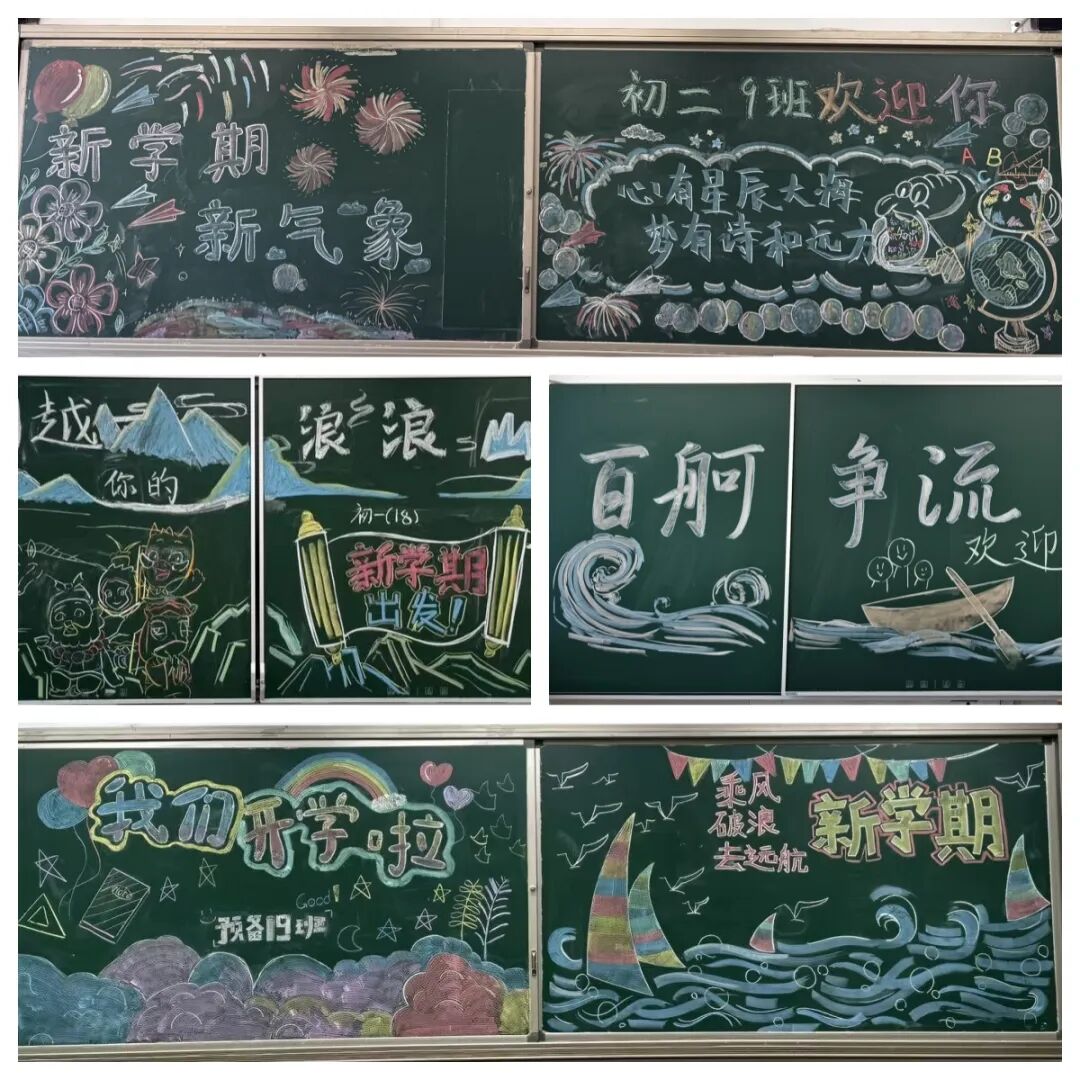 新学期
新气象
初二9班欢迎你
心有星辰大海
梦有诗和远方
A B
C
越
你的
浪浪
初一(18)
新学期
出发!
百舸
争流
欢迎
我们开学啦
Good!
预备19班
乘风
破浪
去远航
新学期